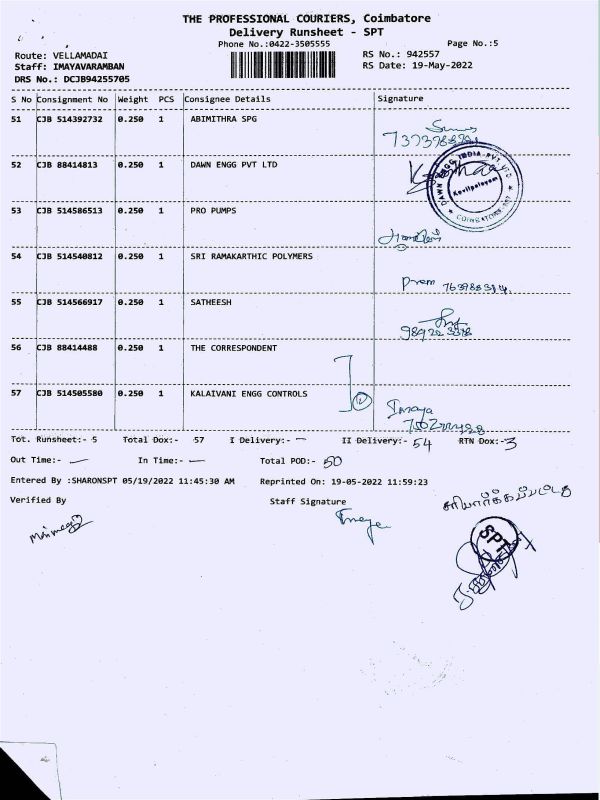 THE PROFESSIONAL COURIERS, Coimbatore
Delivery Runsheet - SPT
Phone No.:0422-3505555
Page No.:5
Route: VELLAMADAI
RS No.: 942557
Staff: IMAYAVARAMBAN
RS Date: 19-May-2022
DRS No.: DCJB94255705
S No Consignment No Weight PCS Consignee Details Signature
51 CJB 514392732 0.250 1 ABIMITHRA SPG
52 CJB 88414813 0.250 1 DAWN ENGG PVT LTD
Kovilpalayam
53 CJB 514586513 0.250 1 PRO PUMPS
54 CJB 514540812 0.250 1 SRI RAMAKARTHIC POLYMERS
Prem
55 CJB 514566917 0.250 1 SATHEESH
56 CJB 88414488 0.250 1 THE CORRESPONDENT
57 CJB 514505580 0.250 1 KALAIVANI ENGG CONTROLS
Imaya
Tot. Runsheet:- 5 Total Dox:- 57 I Delivery:- — II Delivery:- 54 RTN Dox:- 3
Out Time:- — In Time:- — Total POD:- 50
Entered By :SHARONSPT 05/19/2022 11:45:30 AM Reprinted On: 19-05-2022 11:59:23
Verified By Staff Signature
சரிபார்க்கப்பட்டது
SPT